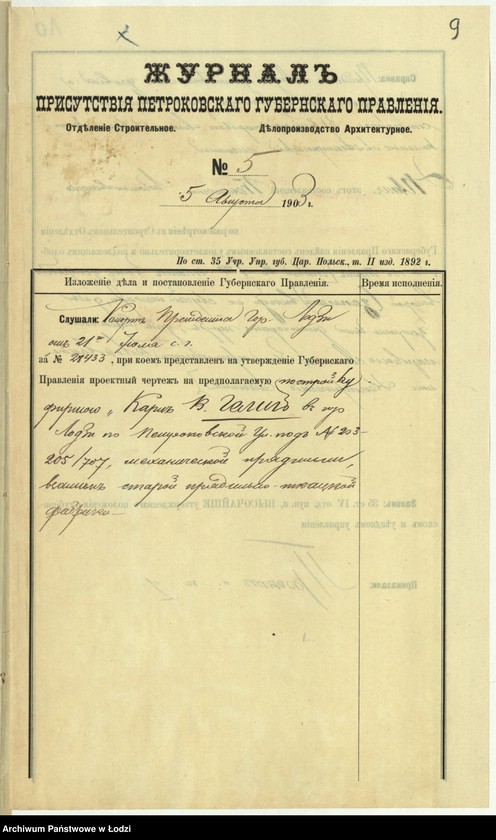 9
ЖУРНАЛЪ
ПРИСУТСТВІЯ ПЕТРОКОВСКАГО ГУБЕРНСКАГО ПРАВЛЕНІЯ.
Отдѣленіе Строительное. Дѣлопроизводство Архитектурное.
№ 5
5 Августа 1903 г.
По ст. 35 Учр. Упр. губ. Цар. Польск., т. II изд. 1892 г.
Изложеніе дѣла и постановленіе Губернскаго Правленія. Время исполненія.
Слушали: Рапортъ Президента гор. Лодзи
отъ 21го с. г.
за № 28433, при коемъ представленъ на утвержденіе Губернскаго
Правленія проектный чертежъ на предполагаемую постройку
фирмою „Карлъ В. въ гор
Лодзи по Ул. подъ № 203-
205/707, механической прядильни,
взамѣнъ старой прядильно-ткацкой
фабрики
Archiwum Państwowe w Łodzi